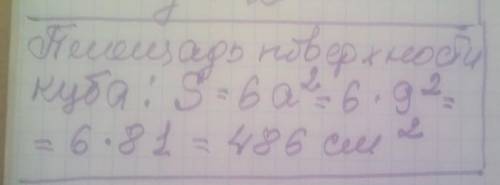 Площадь поверхности
куба: S = 6a² = 6 · 9² =
= 6 · 81 = 486 см²